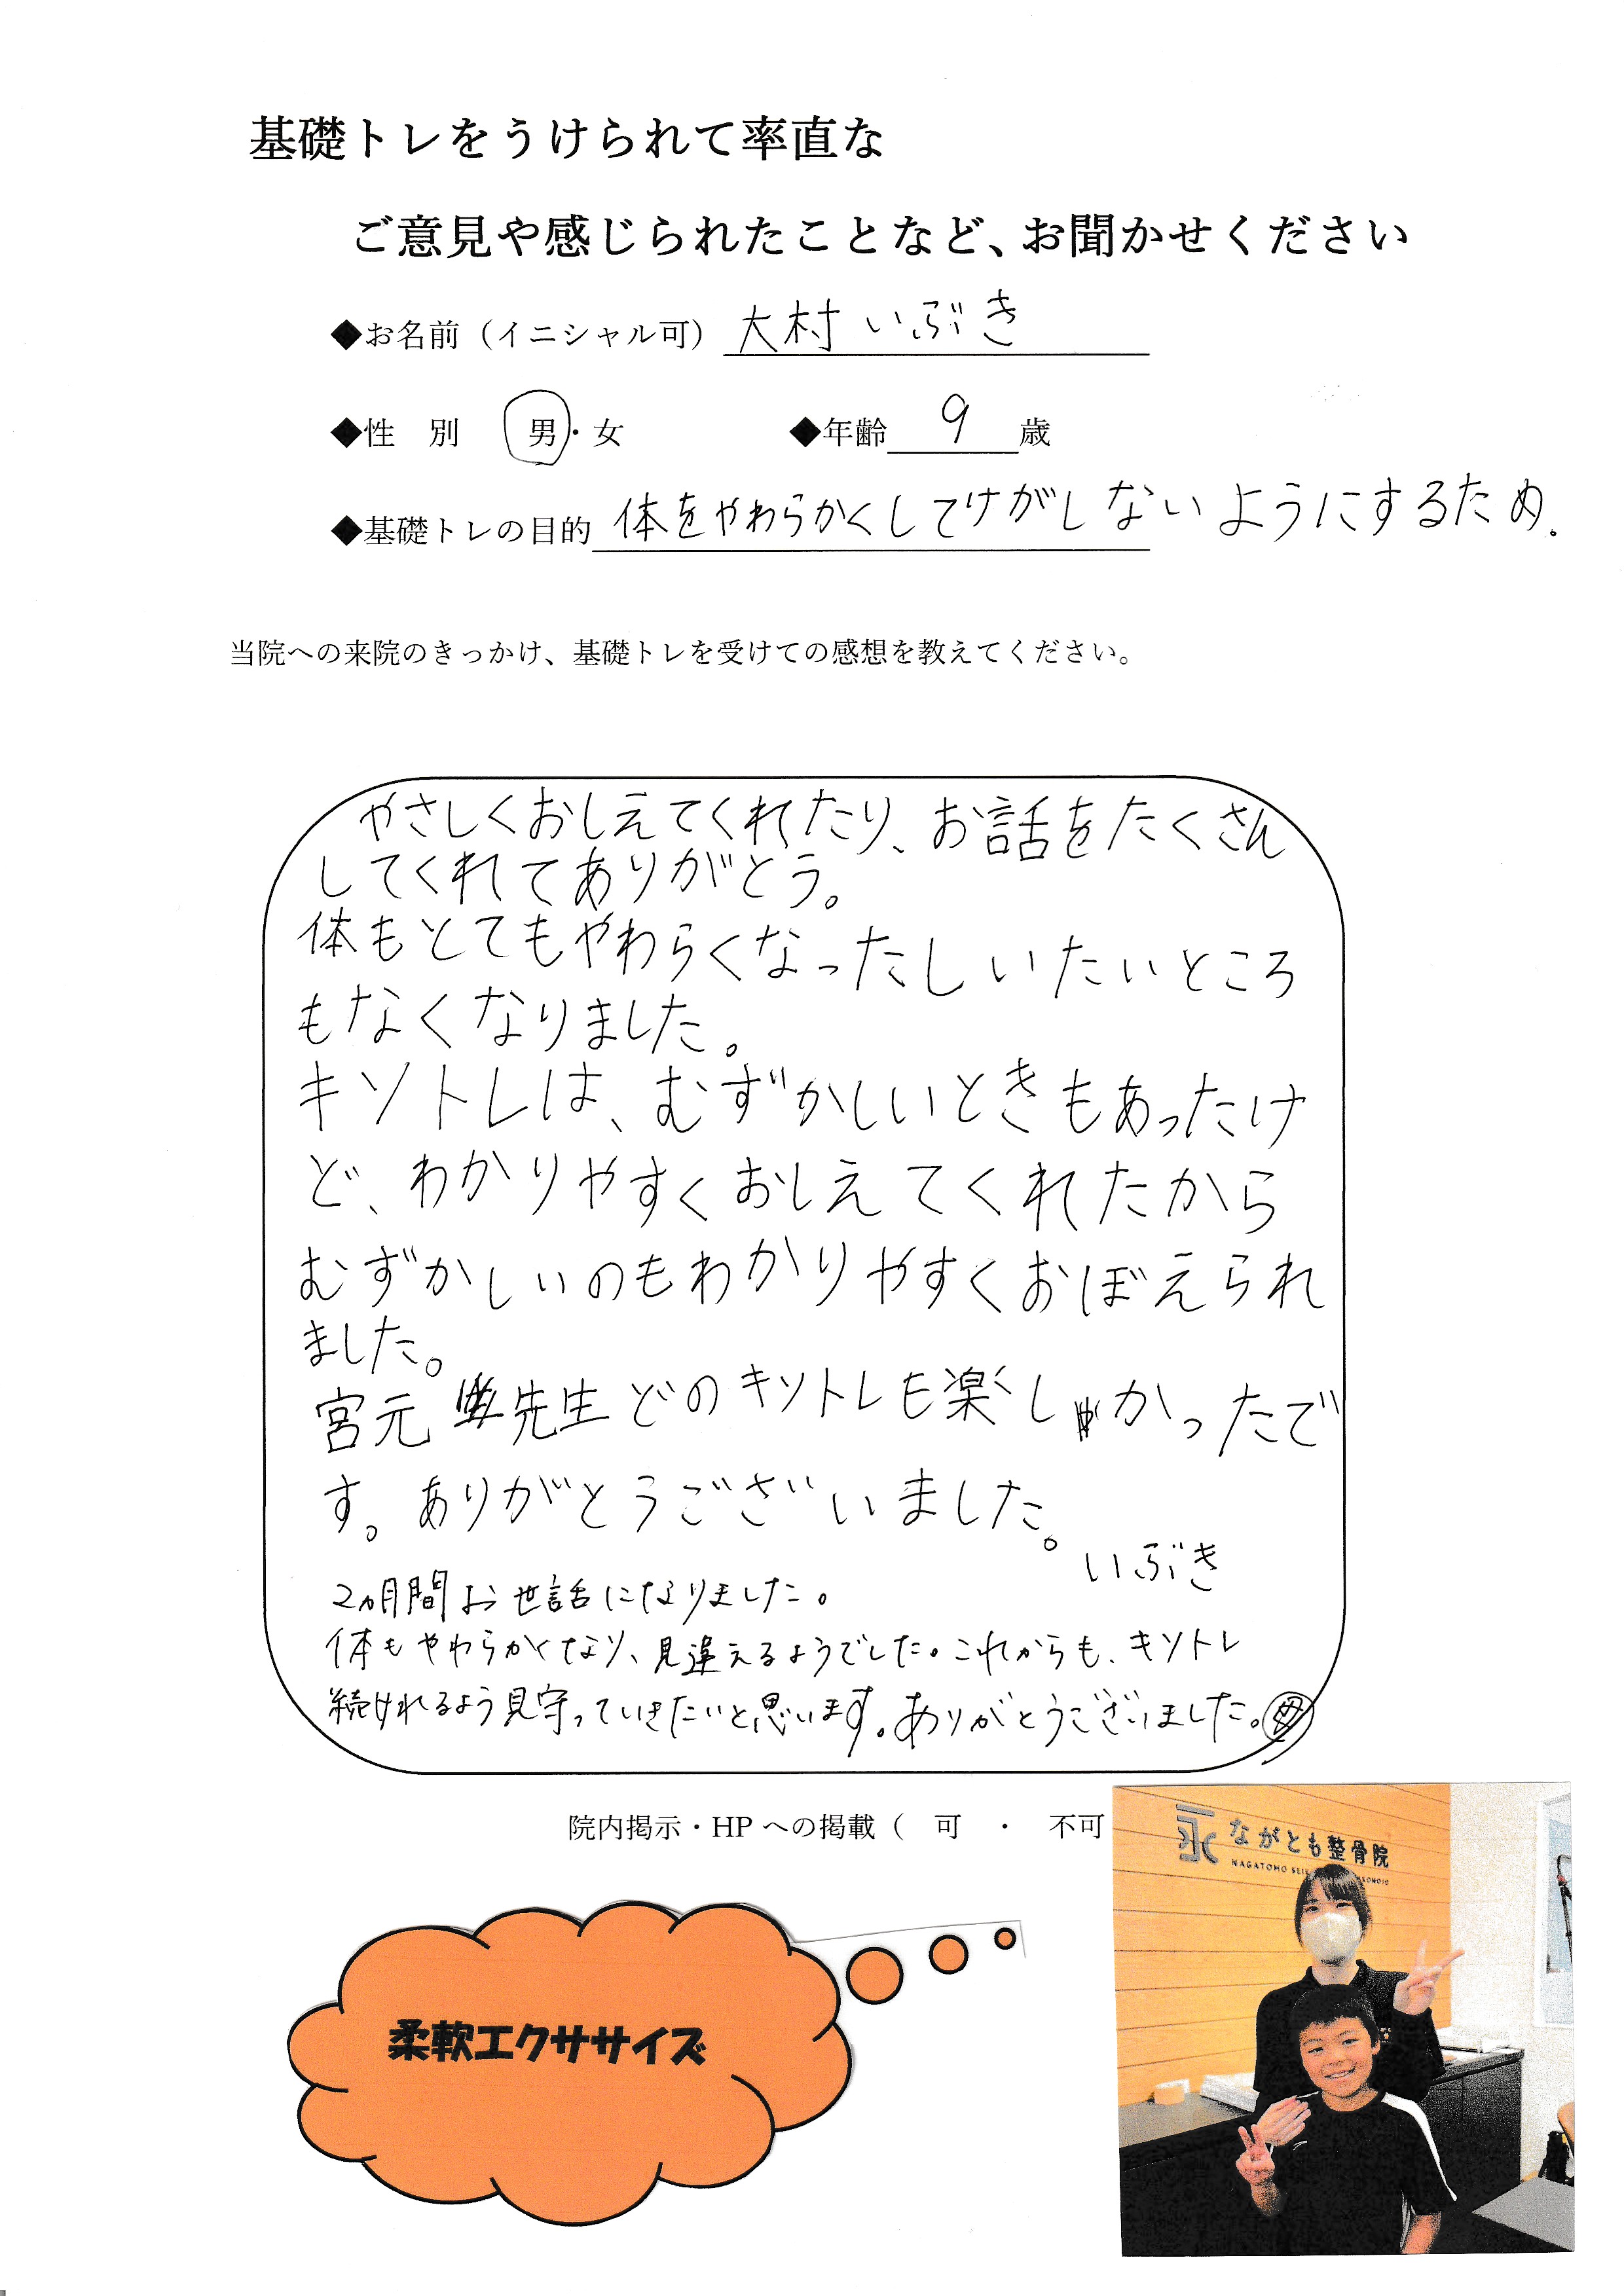 基礎トレをうけられて率直な
ご意見や感じられたことなど、お聞かせください
◆お名前（イニシャル可） 大村 いぶき
◆性 別 男・女 ◆年齢 9 歳
◆基礎トレの目的 体をやわらかくしてけがしないようにするため。
当院への来院のきっかけ、基礎トレを受けての感想を教えてください。
やさしくおしえてくれたり、お話をたくさん
してくれてありがとう。
体もとてもやわらくなったしいたいところ
もなくなりました。
キソトレは、むずかしいときもあったけ
ど、わかりやすくおしえてくれたから
むずかしいのもわかりやすくおぼえられ
ました。
宮元 先生どのキソトレも楽しかったで
す。ありがとうございました。
いぶき
2ヵ月間お世話になりました。
体もやわらかくなり、見違えるようでした。これからも、キソトレ
続けれるよう見守っていきたいと思います。ありがとうございました。母
院内掲示・HPへの掲載（ 可 ・ 不可
ながとも整骨院
NAGATOMO SEI
柔軟エクササイズ